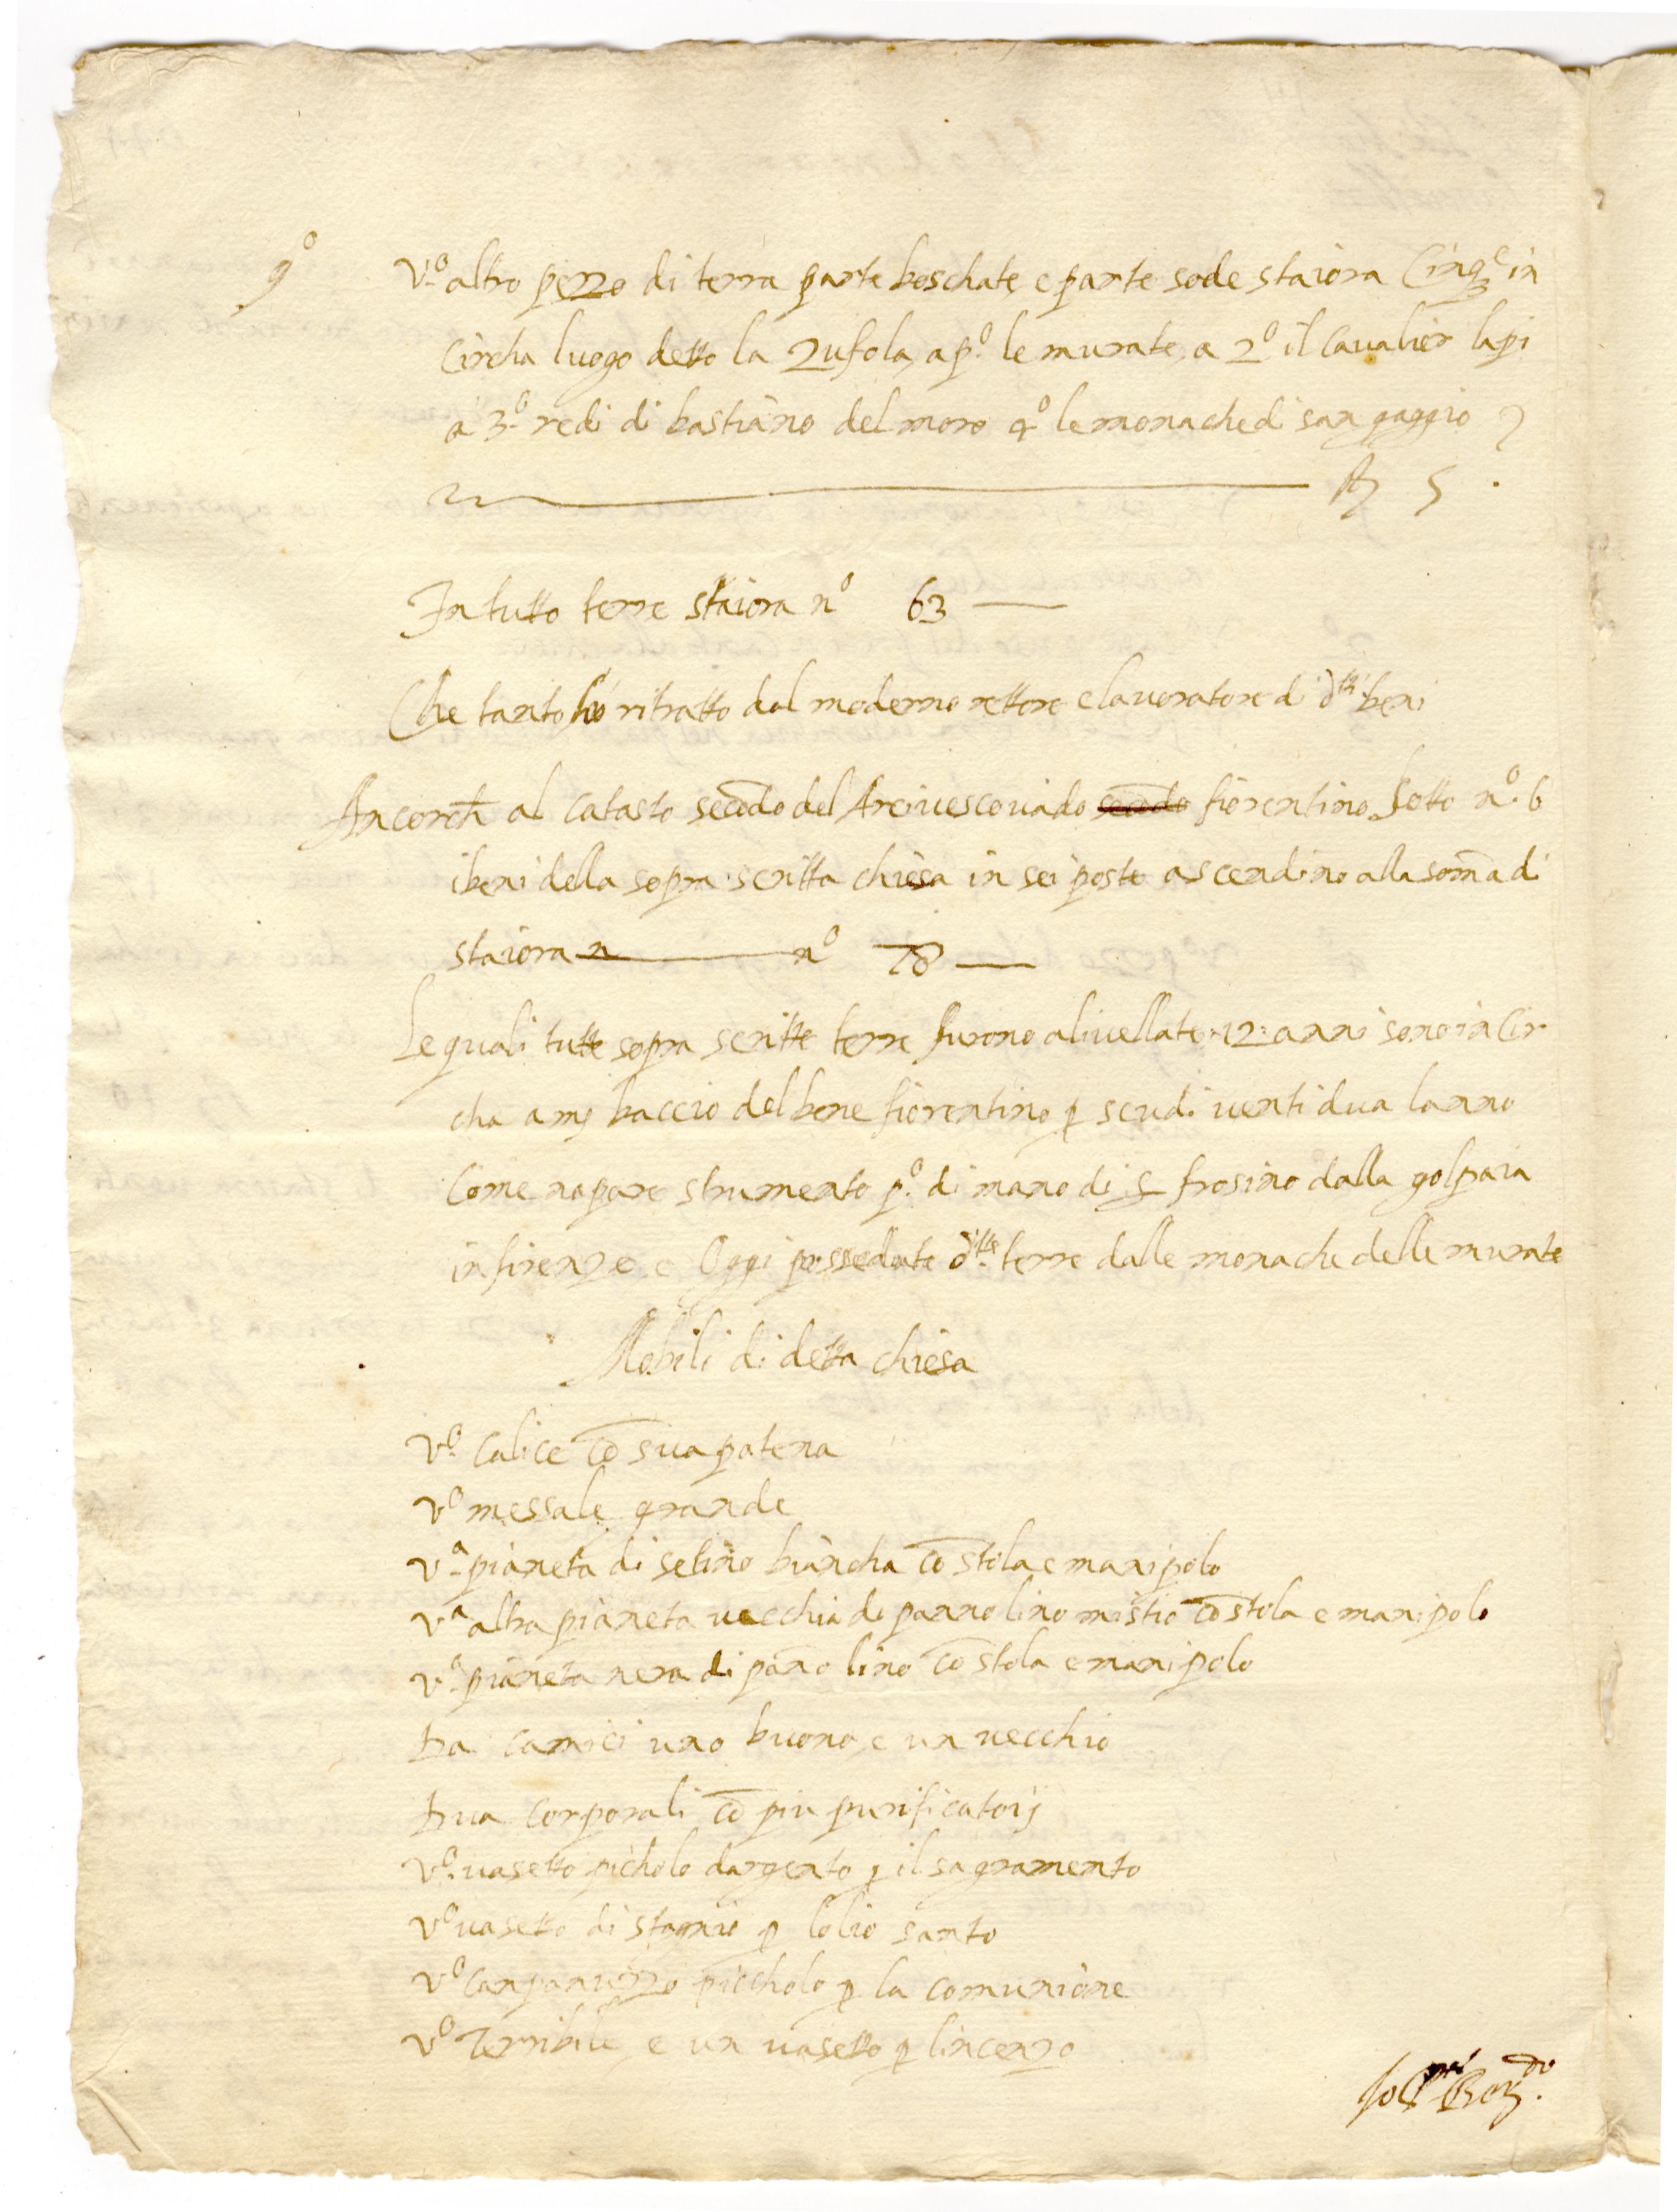 9º
Vº altro pezzo di terra parte boschate e parte sode staiora Cinqe in
Circha luogo detto la Zufola, a pº le murate, a 2º il Cavalier lapi
a 3º redi di bastiano del moro 4º le monache di san gaggio
5
In tutto terre staiora nº 63
Che tanto hó ritratto dal moderno rettore e lavoratore di dti beni
Ancorch al catasto secōdo del Arcivescovado secōdo fiorentino sotto nº 6
i beni della sopra scritta chiesa in sei poste ascendino alla som̄a di
staiora n nº 78
Le quali tutte sopra scritte terre furono alivellate 12 anni sono in Cir
cha a mʒ baccio del bene fiorentino p scudi venti dua lanno
Come napare strumento pº di mano di S frosino dalla golpaia
in firenze e Oggi possedute dtte terre dalle monache delle murate
Mobili di detta chiesa
Vº Calice cō sua patena
Vº messale grande
Vª pianeta di setino biancha cō stola e manipolo
Vª altra pianeta vecchia di panno lino mistio cō stola e manipolo
Vª pianeta nera di pano lino cō stola e manipolo
Da camici uno buono, e un vecchio
Dua Corporali cō piu purificatorij
Vº vasetto picholo dargento p il sagramento
Vº vasetto di stagnio p lolio santo
Vº Canpanuzzo piccholo p la comunione
Vº Terribile e un vasetto p lincenzo